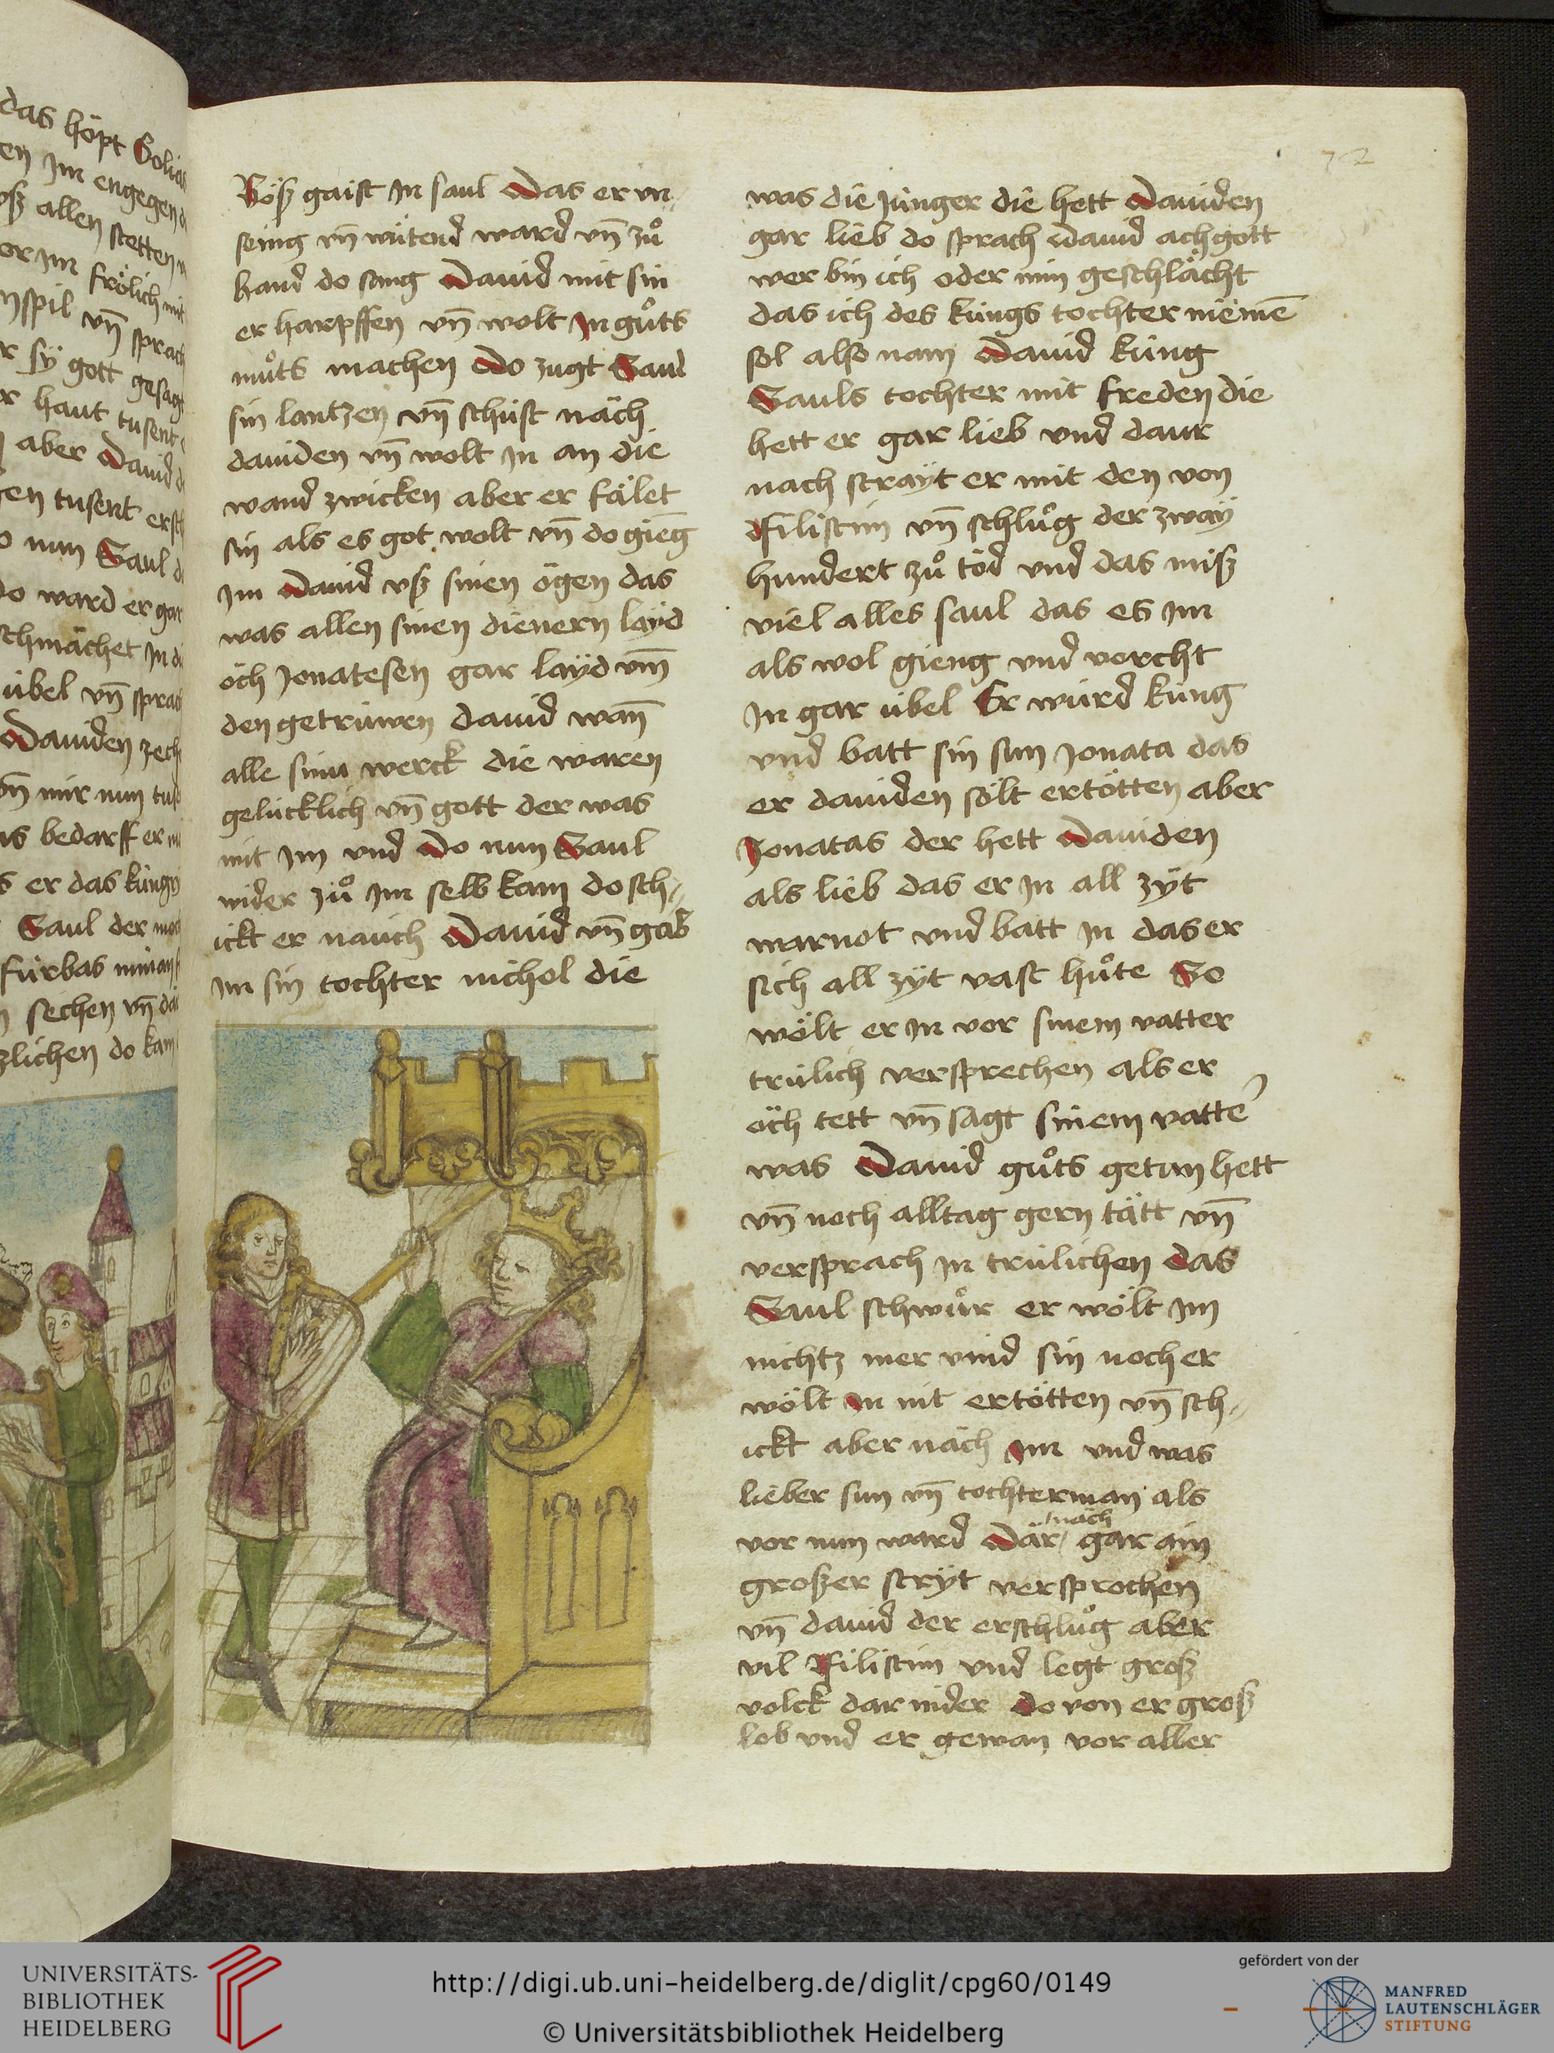 das höpt Golia
en jm engegen
allen stetten
er jm frölich mit
spil vn̄ sprach
sÿ gott gesag
haut tusent
aber Dauid
en tusent ersch
nun Saul
do ward er gar
schmächet jn
übel vn̄ sprach
Dauiden zech
vn̄ mir nun tus
bedarff er
er das küng
Saul der
fürbas
sechen vn̄
lichen do kam
Böß gaist jn saul Das er vn„
seing vn̄ wütend ward vn̄ zů
hand do sang Dauid mit sin
er harpffen vn̄ wolt jn gůts
můts machen Do zugt Saul
sin lantzen vn̄ schust näch
dauiden vn̄ wolt jn an die
wand zwicken aber er fälet
sin als es got wolt vn̄ do gieng
jm Dauid vß sinen ögen das
was allen sinen dienern layd
öch jonatesen gar laÿd vm̄
den getrüwen dauid wan̄
alle sinu werck die waren
gelücklich vn̄ gott der was
mit jm und Do nun Saul
wider zů jm selb kam do sch„
ickt er nauch Dauid vn̄ gab
jm sin tochter nichol die
was die jünger die hett Dauiden
gar lieb do sprach Dauid ach gott
wer bin ich oder min geschlächt
das ich des küngs tochter niemē
sol also nam Dauid küng
Sauls tochter mit freden die
hett er gar lieb vnd daur
nach straÿt er mit den von
Filistim vn̄ schlůg der zway
hundert zů tod vnd das miß
viel alles saul das es jm
als wol gieng vnd vorcht
jn gar übel Er würd küng
vnd batt sin sun jonata das
er dauiden sölt ertötten aber
Jonatas der hett Dauiden
als lieb das er jn all zÿt
warnot vnd batt jn das er
sich all zÿt vast hůte So
wölt er jn vor sinem vatter
trülich versprechen als er
öch tett vn̄ sagt sinem vatte
was Dauid gůts getan hett
vn̄ noch alltag gern tätt vn̄
versprach jn trülichen das
Saul schwůr er wölt jm
nichtz mer vind sin noch er
wölt jn nit ertötten vn̄ sch„
ickt aber näch jm vnd was
lieber sun vn̄ tochterman als
vor nun ward Där näch gar ain
großer strÿt versprochen
vn̄ dauid der erschlůg aber
vil Filistim vnd legt groß
volck dar nider do von er groß
lob vnd er gewan vor aller
72
UNIVERSITÄTS-
BIBLIOTHEK
HEIDELBERG
http://digi.ub.uni-heidelberg.de/diglit/cpg60/0149
© Universitätsbibliothek Heidelberg
gefördert von der
MANFRED
LAUTENSCHLÄGER
STIFTUNG